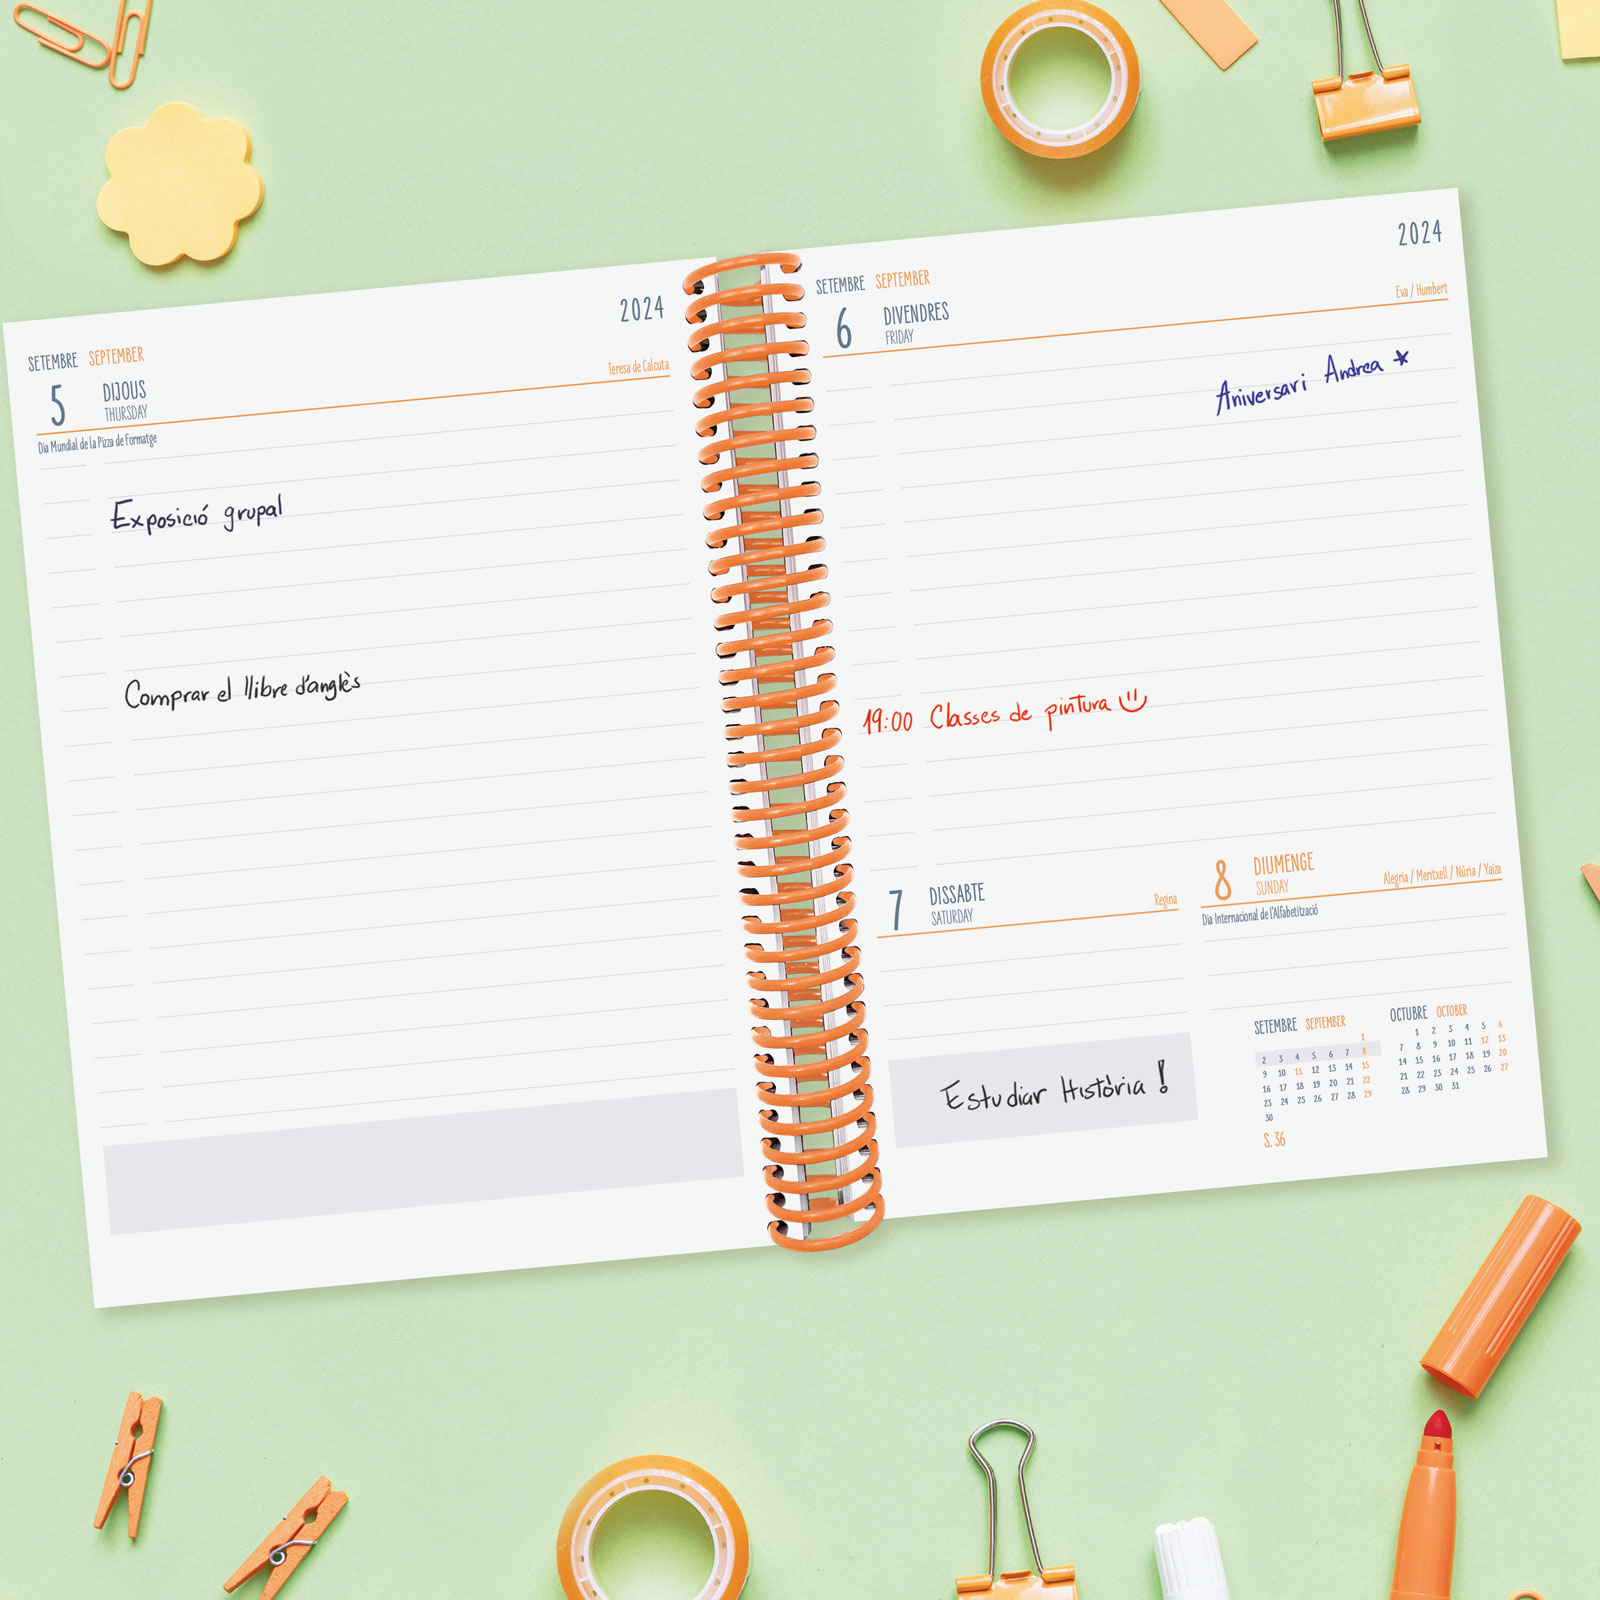 2024
SETEMBRE SEPTEMBER
5 DIJOUS
THURSDAY
Teresa de Calcuta
Dia Mundial de la Pizza de Formatge
Exposició grupal
Comprar el llibre d'anglès
2024
SETEMBRE SEPTEMBER
6 DIVENDRES
FRIDAY
Eva / Humbert
Aniversari Andrea
19:00 Classes de pintura
7 DISSABTE
SATURDAY
Regina
Estudiar Història!
8 DIUMENGE
SUNDAY
Alegria / Meritxell / Núria / Yaiza
Dia Internacional de l'Alfabetització
SETEMBRE SEPTEMBER
1
2 3 4 5 6 7 8
9 10 11 12 13 14 15
16 17 18 19 20 21 22
23 24 25 26 27 28 29
30
S. 36
OCTUBRE OCTOBER
1 2 3 4 5 6
7 8 9 10 11 12 13
14 15 16 17 18 19 20
21 22 23 24 25 26 27
28 29 30 31